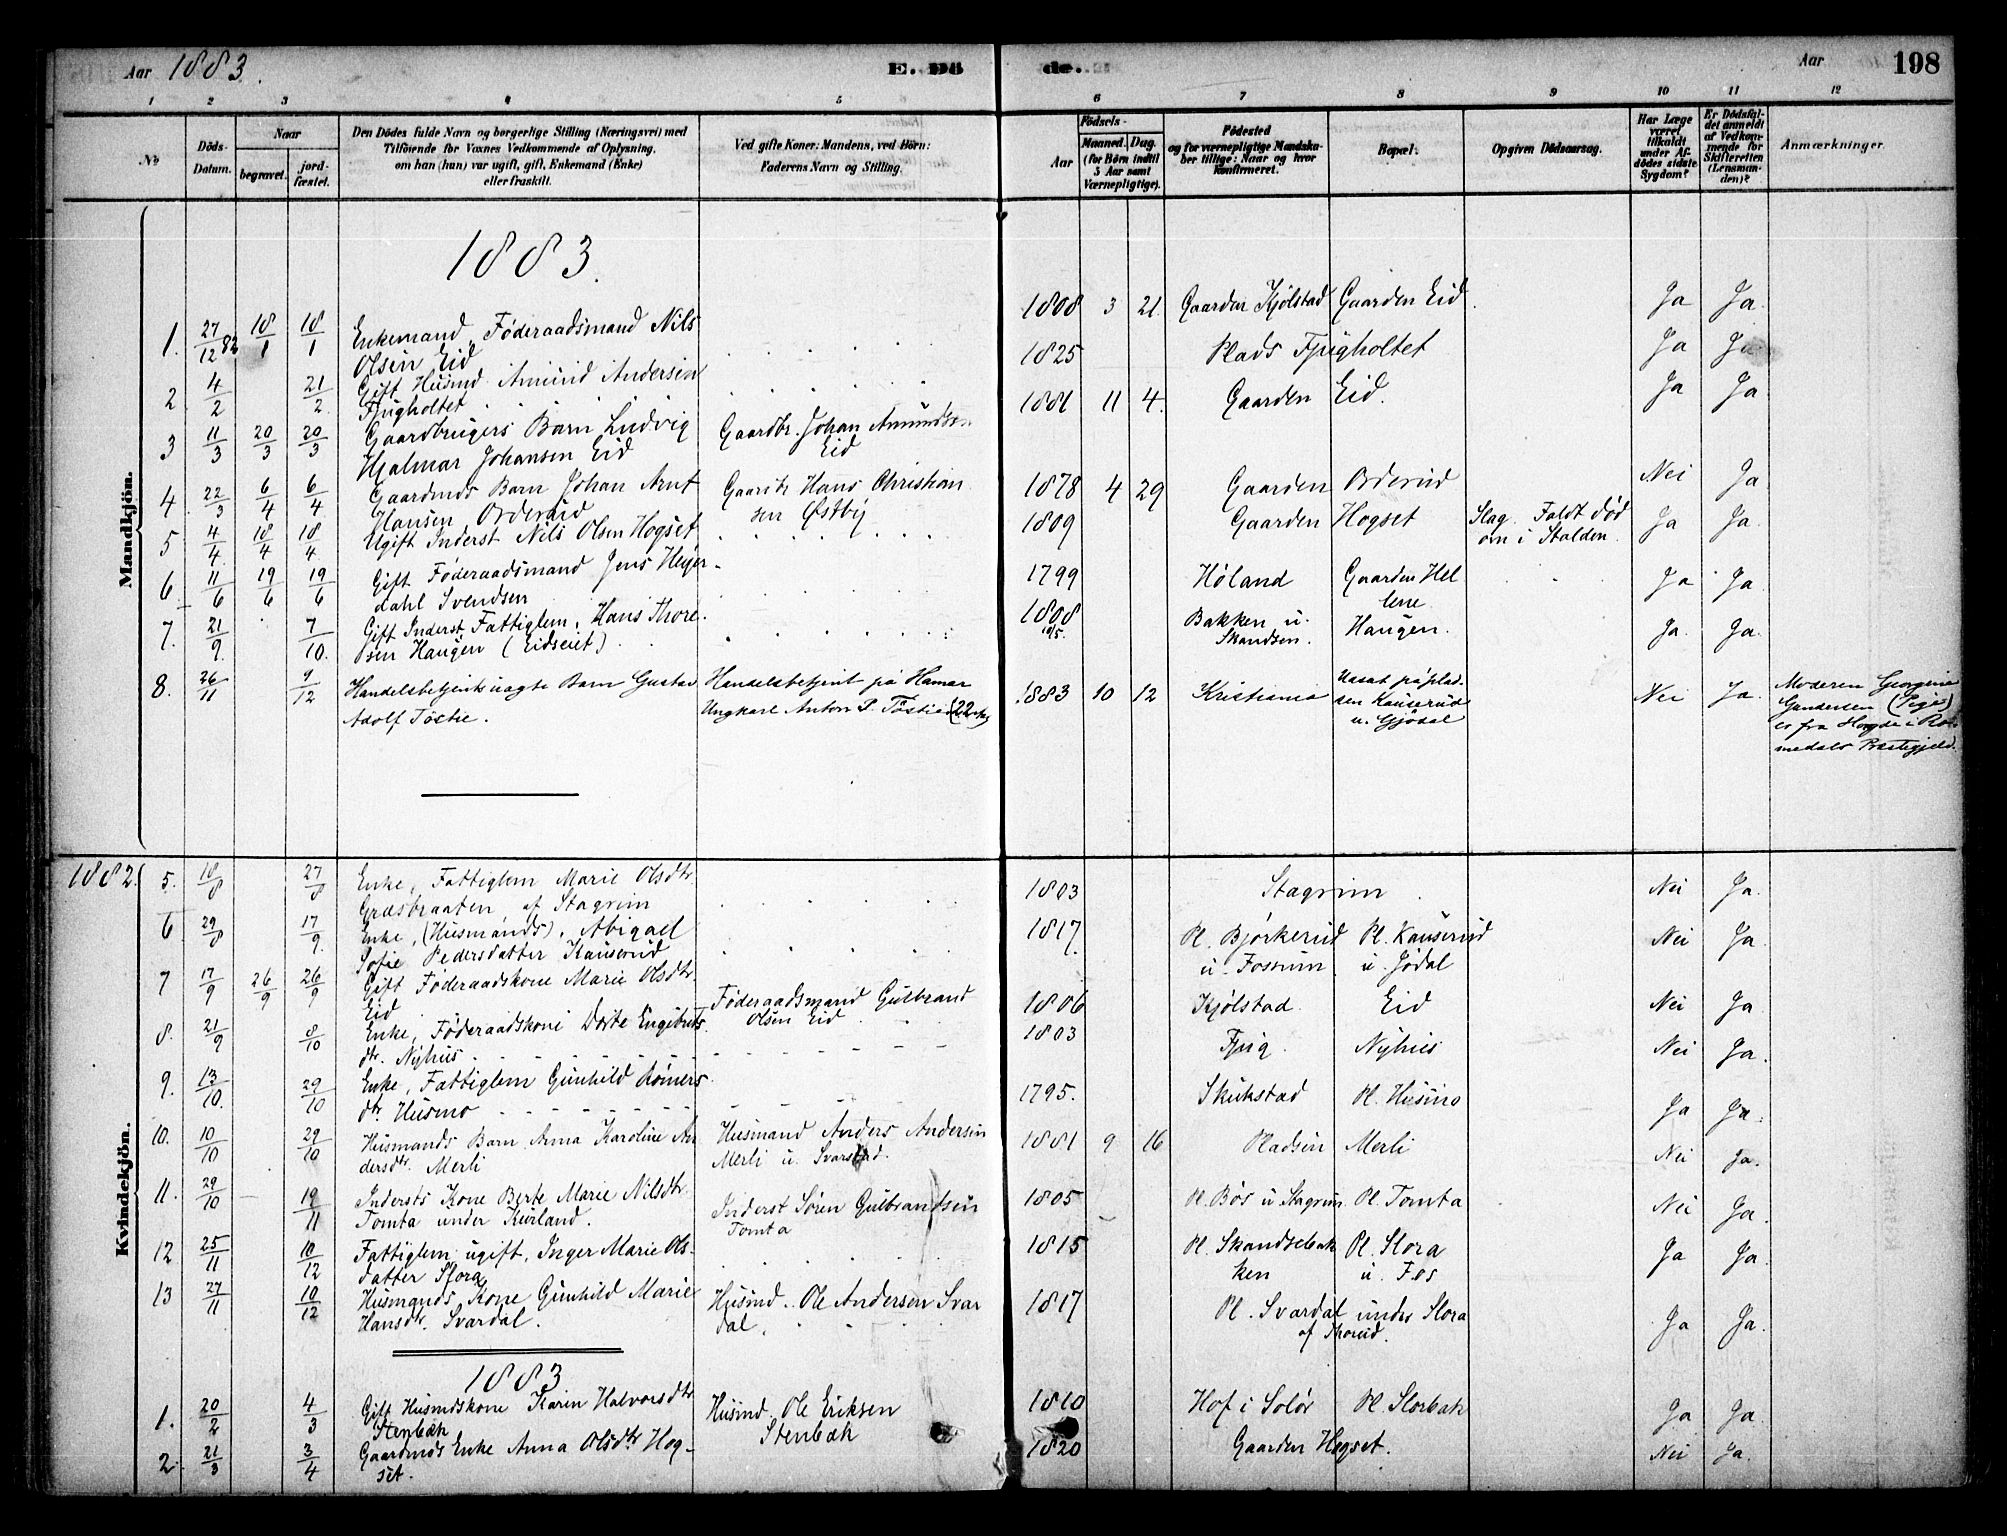 Aar 1883.
E. Dö
de.
Aar
198
1 2 3 4 5 6 7 8 9 10 11 12
No
Döds-Datum.
Naar
begravet.
jord-fæstet.
Den Dödes fulde Navn og borgerlige Stilling (Næringsvei) med
Tilföiende for Voxnes Vedkommende af Oplysning,
om han (hun) var ugift, gift, Enkemand (Enke)
eller fraskilt.
Ved gifte Koner: Mandens, ved Börn:
Faderens Navn og Stilling.
Födsels-
Aar
Maaned. Dag.
(for Börn indtil
5 Aar samt
Værnepligtige).
Födested
og for værnepligtige Mandska-
ber tillige: Naar og hvor
konfirmeret.
Bopæl.
Opgiven Dödsaarsag.
Har Læge
været
tilkaldt
under Af-
dödes sidste
Sygdom?
Er Dödsfal-
det anmeldt
af Vedkom-
mende for
Skifteretten
(Lensman-
den)?
Anmærkninger.
Mandkjön.
1883.
1. 27/12 82 18/1 18/1 Enkemand, Føderaadsmand Nils
Olsen Eid
1808 3 21. Gaarden Kjølstad Gaarden Eid. Ja Ja.
2 4/2 21/2 Gift Husmd. Amund Andersen
Fjugholtet
1825 Plads Fjugholtet Ja Ja
3 11/3 20/3 20/3 Gaardbrugers Barn Ludvig
Hjalmar Johansen Eid
Gaardbr. Johan Amundsen
Eid
1881 11 4. Gaarden Eid. Ja Ja
4 22/3 6/4 6/4 Gaardmds Barn Johan Arnt
Hansen Orderud
Gaardbr Hans Christian
sen Østby
1878 4 29 Gaarden Orderud Nei Ja
5 4/4 18/4 18/4 Ugift Inderst Nils Olsen Hogset
1809 Gaarden Hogset Slag. Faldt død
om i Stalden. Ja Ja.
6. 11/6 19/6 19/6 Gift Føderaadsmand Jens Heyer-
dahl Svendsen
1799 Høland Gaarden Hel
lene Ja Ja
7. 21/9 7/10. Gift Inderst, Fattiglem, Hans Thore
sen Haugen (Eidseiet)
1808
10/5. Bakken u.
Skandsen. Haugen. Ja. Ja.
8. 26/11 9/12 Handelsbetjents uægte Barn Gustav
Adolf Tøstie.
Handelsbetjent på Hamar
Ungkarl Anton P. Tøstie
1883 10 12 Kristiania Uasat på plad-
sen Kauserud
u. Gjødal Nei Ja. Moderen Georgine
Gundersen (Pige)
er fra Horgde i Ro-
medals Præstegjeld.
Kvindekjön.
1882. 5. 18/8 27/8 Enke, Fattiglem Marie Olsdtr.
Græsbraaten af Stagrim
1803 Stagrim. Nei Ja.
6 29/8 17/9. Enke, (Husmands), Abigael
Sofie Pedersdatter Kauserud
1817. Pl. Bjørkerud
u. Fossum Pl. Kauserud
u. Jødal Nei Ja.
7 17/9 26/9 26/9 Gift Føderaadskone Marie Olsdtr.
Eid
Føderaadsmand Gulbrand
Olsen Eid
1806 Kjølstad Eid Nei Ja
8. 21/9 8/10 Enke, Føderaadskone Dorte Engebrets
dtr. Nyhus
1803 Fjug. Nyhus Nei Ja.
9. 13/10. 29/10 Enke, Fattiglem Gunhild Romers
dtr Husmo
1795. Skukstad Pl. Husmo Ja Ja.
10. 10/10 29/10 Husmands Barn Anna Karoline An
dersdtr. Merli
Husmand Anders Andersen
Merli u. Svarstad.
1881 9 16 Pladsen Merli Nei Ja.
11. 29/10 19/11 Indersts Kone Berte Marie Nilsdtr.
Tomta under Kurland.
Inderst Søren Gulbrandsen
Tomta
1805 Pl. Bøs u Stagrim Pl. Tomta Nei Ja.
12 25/11 10/12 Fattiglem ugift, Inger Marie Ols-
datter Slora
1815 Pl. Skandsebak
ken Pl. Slora
u. Fos Ja Ja.
13 27/11 10/12 Husmands Kone Gunhild Marie
Hansdtr. Svardal.
Husmd. Ole Andersen Svar
dal.
1817 Pl. Svardal under Slora
af Thorud. Ja Ja.
1883
1. 20/2 4/3 Gift Husmdskone Karin Halvorsdtr
Stenbæk
Husmd. Ole Eriksen
Stenbæk
1810 Hof i Solør Pl. Storbæk Ja Ja.
2. 21/3 3/4 Gaardmds Enke Anna Olsdtr Hog-
set.
1820 Gaarden Hogset. Nei Ja.